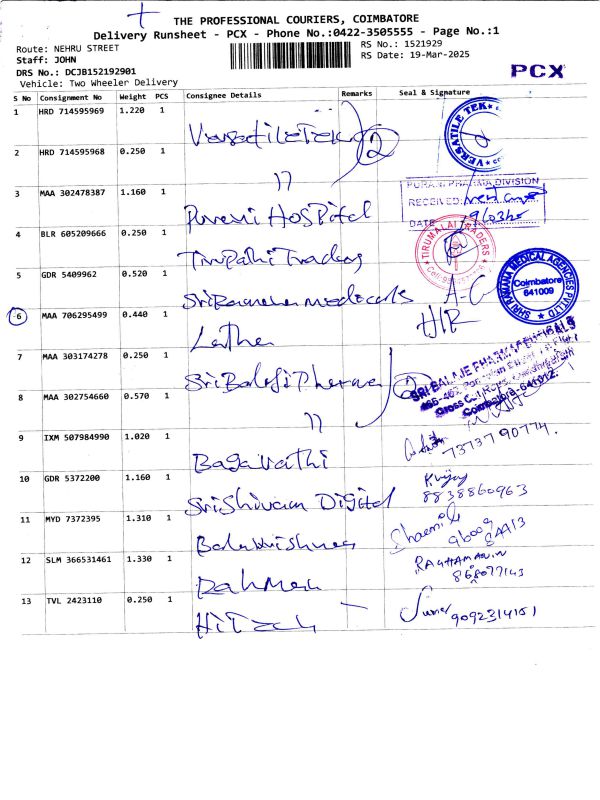 THE PROFESSIONAL COURIERS, COIMBATORE
Delivery Runsheet - PCX - Phone No.:0422-3505555 - Page No.:1
Route: NEHRU STREET
RS No.: 1521929
Staff: JOHN
RS Date: 19-Mar-2025
DRS No.: DCJB152192901
PCX
Vehicle: Two Wheeler Delivery
S No Consignment No Weight PCS Consignee Details Remarks Seal & Signature
1 HRD 714595969 1.220 1 VersatileTek 2
VERSATILE TEK
2 HRD 714595968 0.250 1 "
PURANI PHARMA DIVISION
RECEIVED:
DATE
3 MAA 302478387 1.160 1 Purani Hospital
4 BLR 605209666 0.250 1 Tirupathi Traders
TIRUMALAI TRADERS
5 GDR 5409962 0.520 1
SHRI RAMANA MEDICAL AGENCIES PVT LTD
Coimbatore
641009
6 MAA 706295499 0.440 1 Latha
7 MAA 303174278 0.250 1 Sri Balaji Pharma 2
SRI BALAJE PHARMACEUTICALS
Coimbatore-641012.
8 MAA 302754660 0.570 1 "
9 IXM 507984990 1.020 1 Bagavathi
7373790774.
10 GDR 5372200 1.160 1 Sri Shivam Digital
K Vijay
8838860963
11 MYD 7372395 1.310 1 Balakrishnan
12 SLM 366531461 1.330 1 Rahman
13 TVL 2423110 0.250 1 HiTech
9092314151